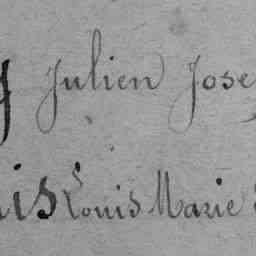 Julien Jose
Louis Marie